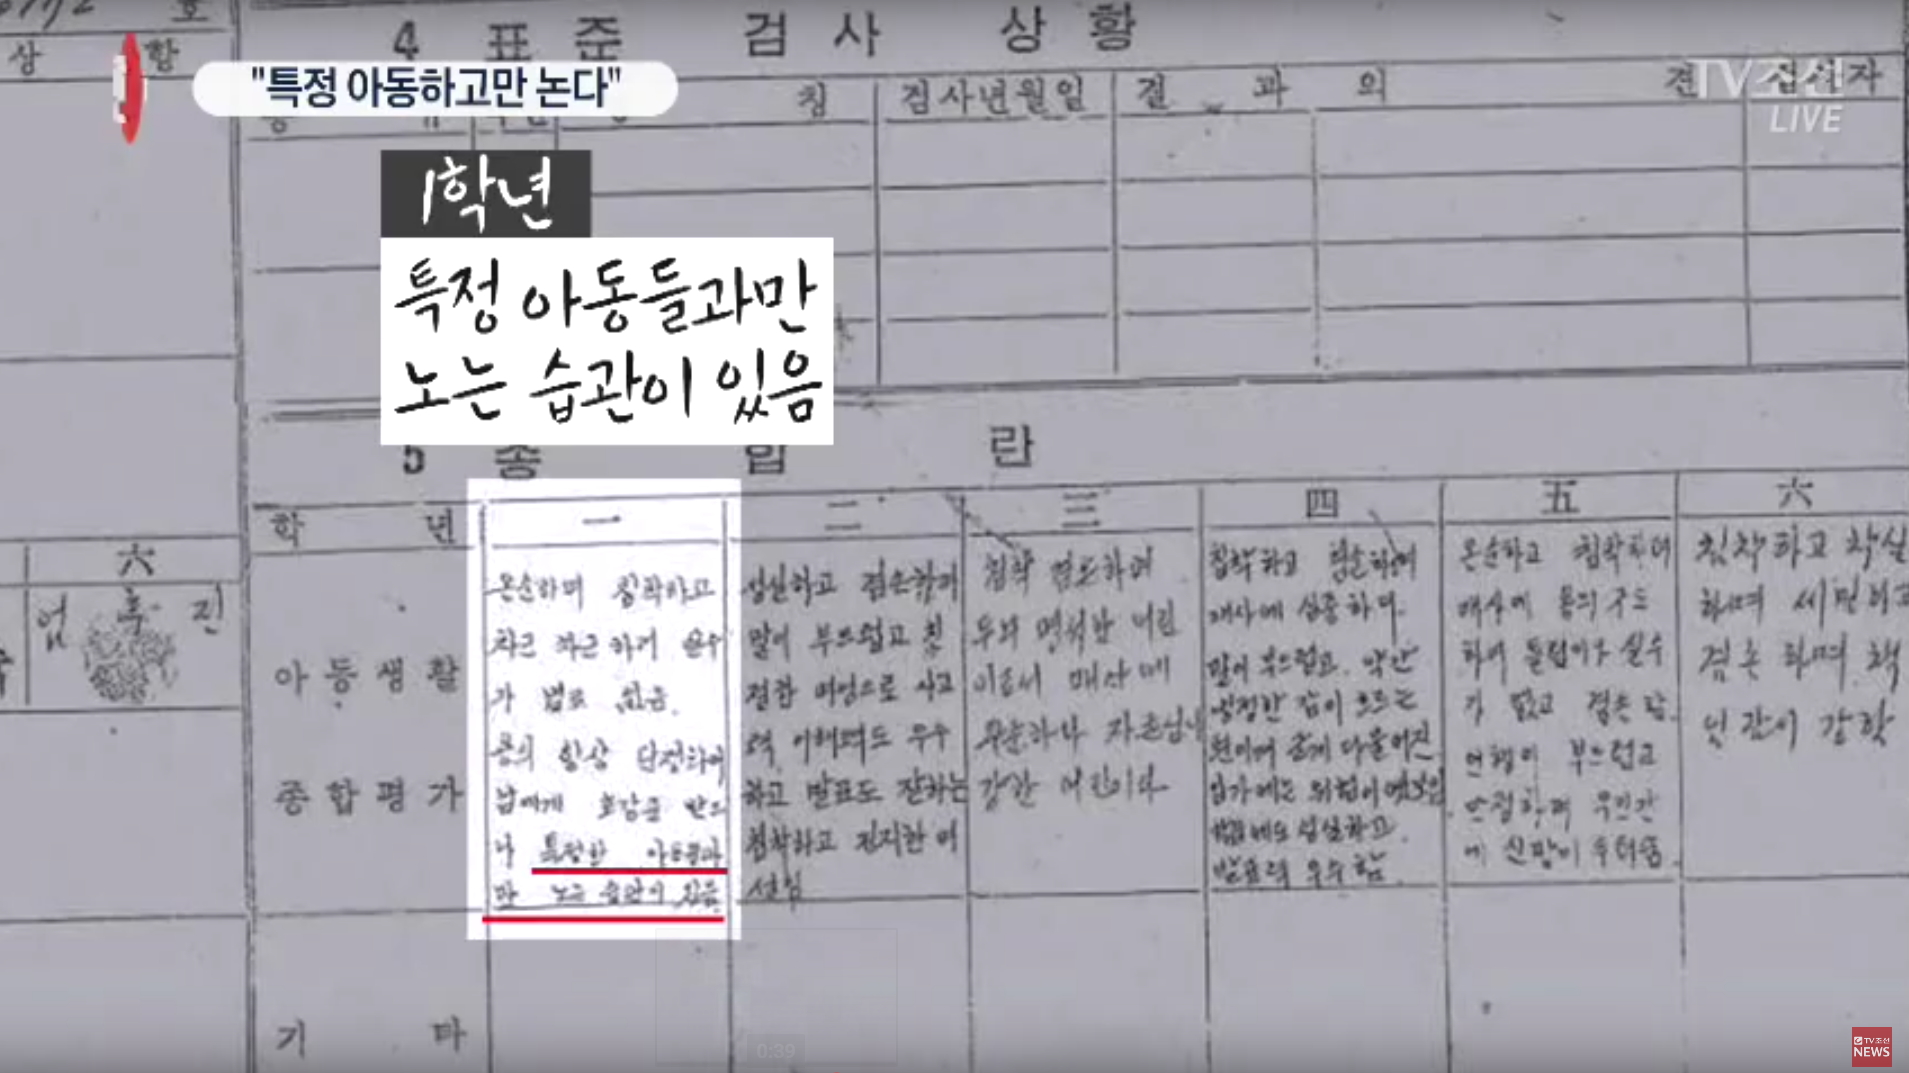 호
상 황
4 표 준 검 사 상 황
"특정 아동하고만 논다"
칭 검사년월일 결 과 의 견
TV조선
LIVE
1학년
특정 아동들과만
노는 습관이 있음
5 종 합 란
학 년 一 二 三 四 五 六
六
진
아동생활
종합평가
온순하며 침착하고
차근 차근 하기 실수
가 별로 없음.
용의 항상 단정하여
남에게 호감을 받으
나 특정한 아동들과
만 노는 습관이 있음
성실하고 겸손하며
말이 부드럽고 친
절한 며 사고
력 이해력도 우수
하고 발표도 잘하는
침착하고 진지한 어
침착
두뇌 명석한 어린
이로서 매사에
우순하나 자존심이
강한 어린이다
침착하고 겸손하며
매사에 심중하다.
말이 부드럽고. 약간
냉정한 감이 흐르는
입가에는 위엄이
성실하고.
발표력 우수함.
온순하고 침착하며
매사에 용의주도
하여 틀림이나 실수
가 없고 겸손함.
언행이 부드럽고
안정하며 우인간
에 신망이 두터움.
침착하고 착실
하며 세밀하고
겸손하며 책
임감이 강함
기 타
0:39
TV조선
NEWS